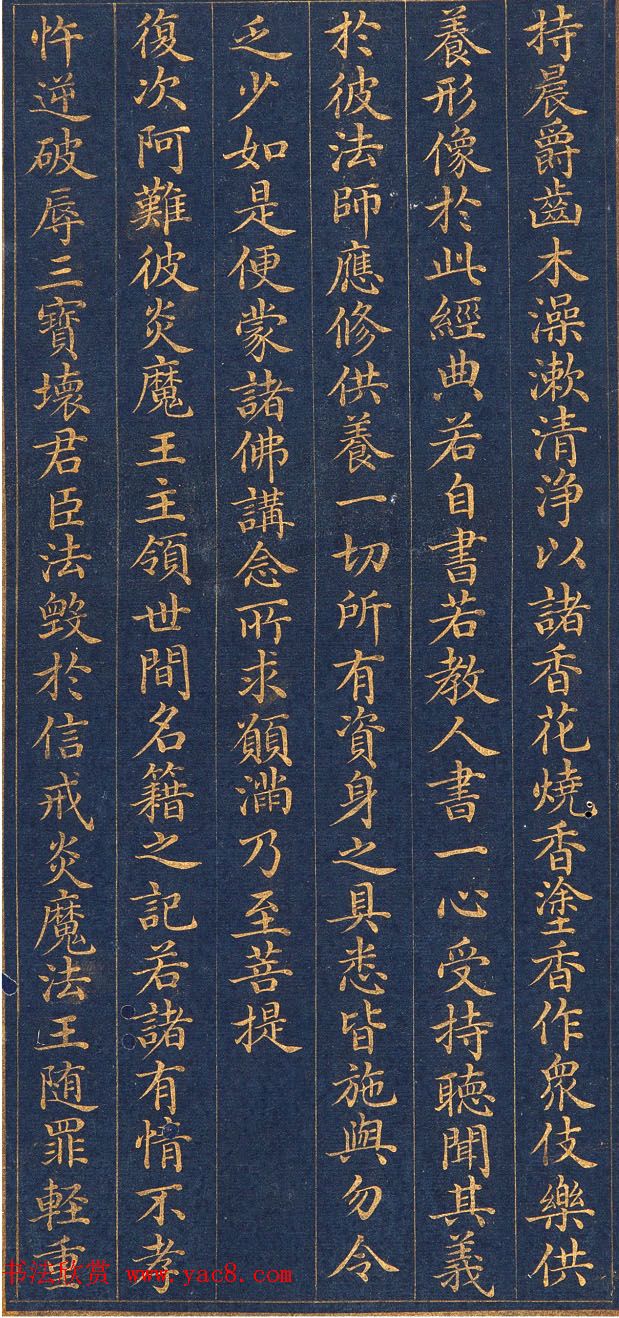 持晨爵齒木澡漱清淨以諸香花燒香塗香作眾伎樂供
養形像於此經典若自書若教人書一心受持聽聞其義
於彼法師應修供養一切所有資身之具悉皆施與勿令
乏少如是便蒙諸佛講念所求願滿乃至菩提
復次阿難彼炎魔王主領世間名籍之記若諸有情不孝
忤逆破辱三寶壞君臣法毀於信戒炎魔法王随罪輕重
书法欣赏 www.yac8.com